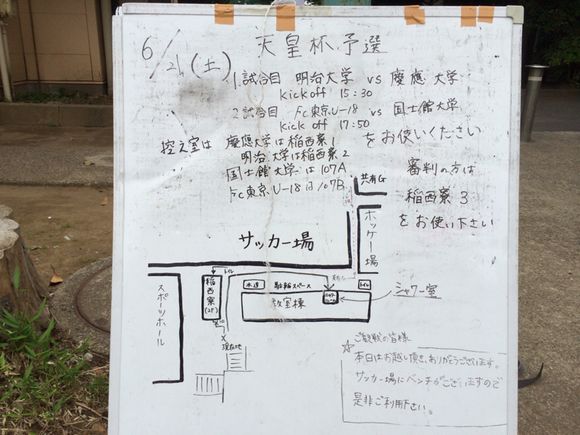 6/21(土)
天皇杯予選
1.試合目 明治大学 vs 慶應大学
kick off 15:30
2.試合目 Fc東京U-18 vs 国士館大学
kick off 17:50
控え室は 慶應大学は稲西寮1
明治大学は稲西寮2
国士館大学は107A
Fc東京U-18は107B
をお使いください
審判の方は
稲西寮3
をお使い下さい
共有G
ホッケー場
サッカー場
トイレ
稲西寮
(2F)
水道
駐輪スペース
教室棟
トイレ
シャワー室
スポーツホール
現在地
ご観戦の皆様
☆本日はお越し頂き、ありがとうございます。
サッカー場にベンチがございますので
是非ご利用下さい。